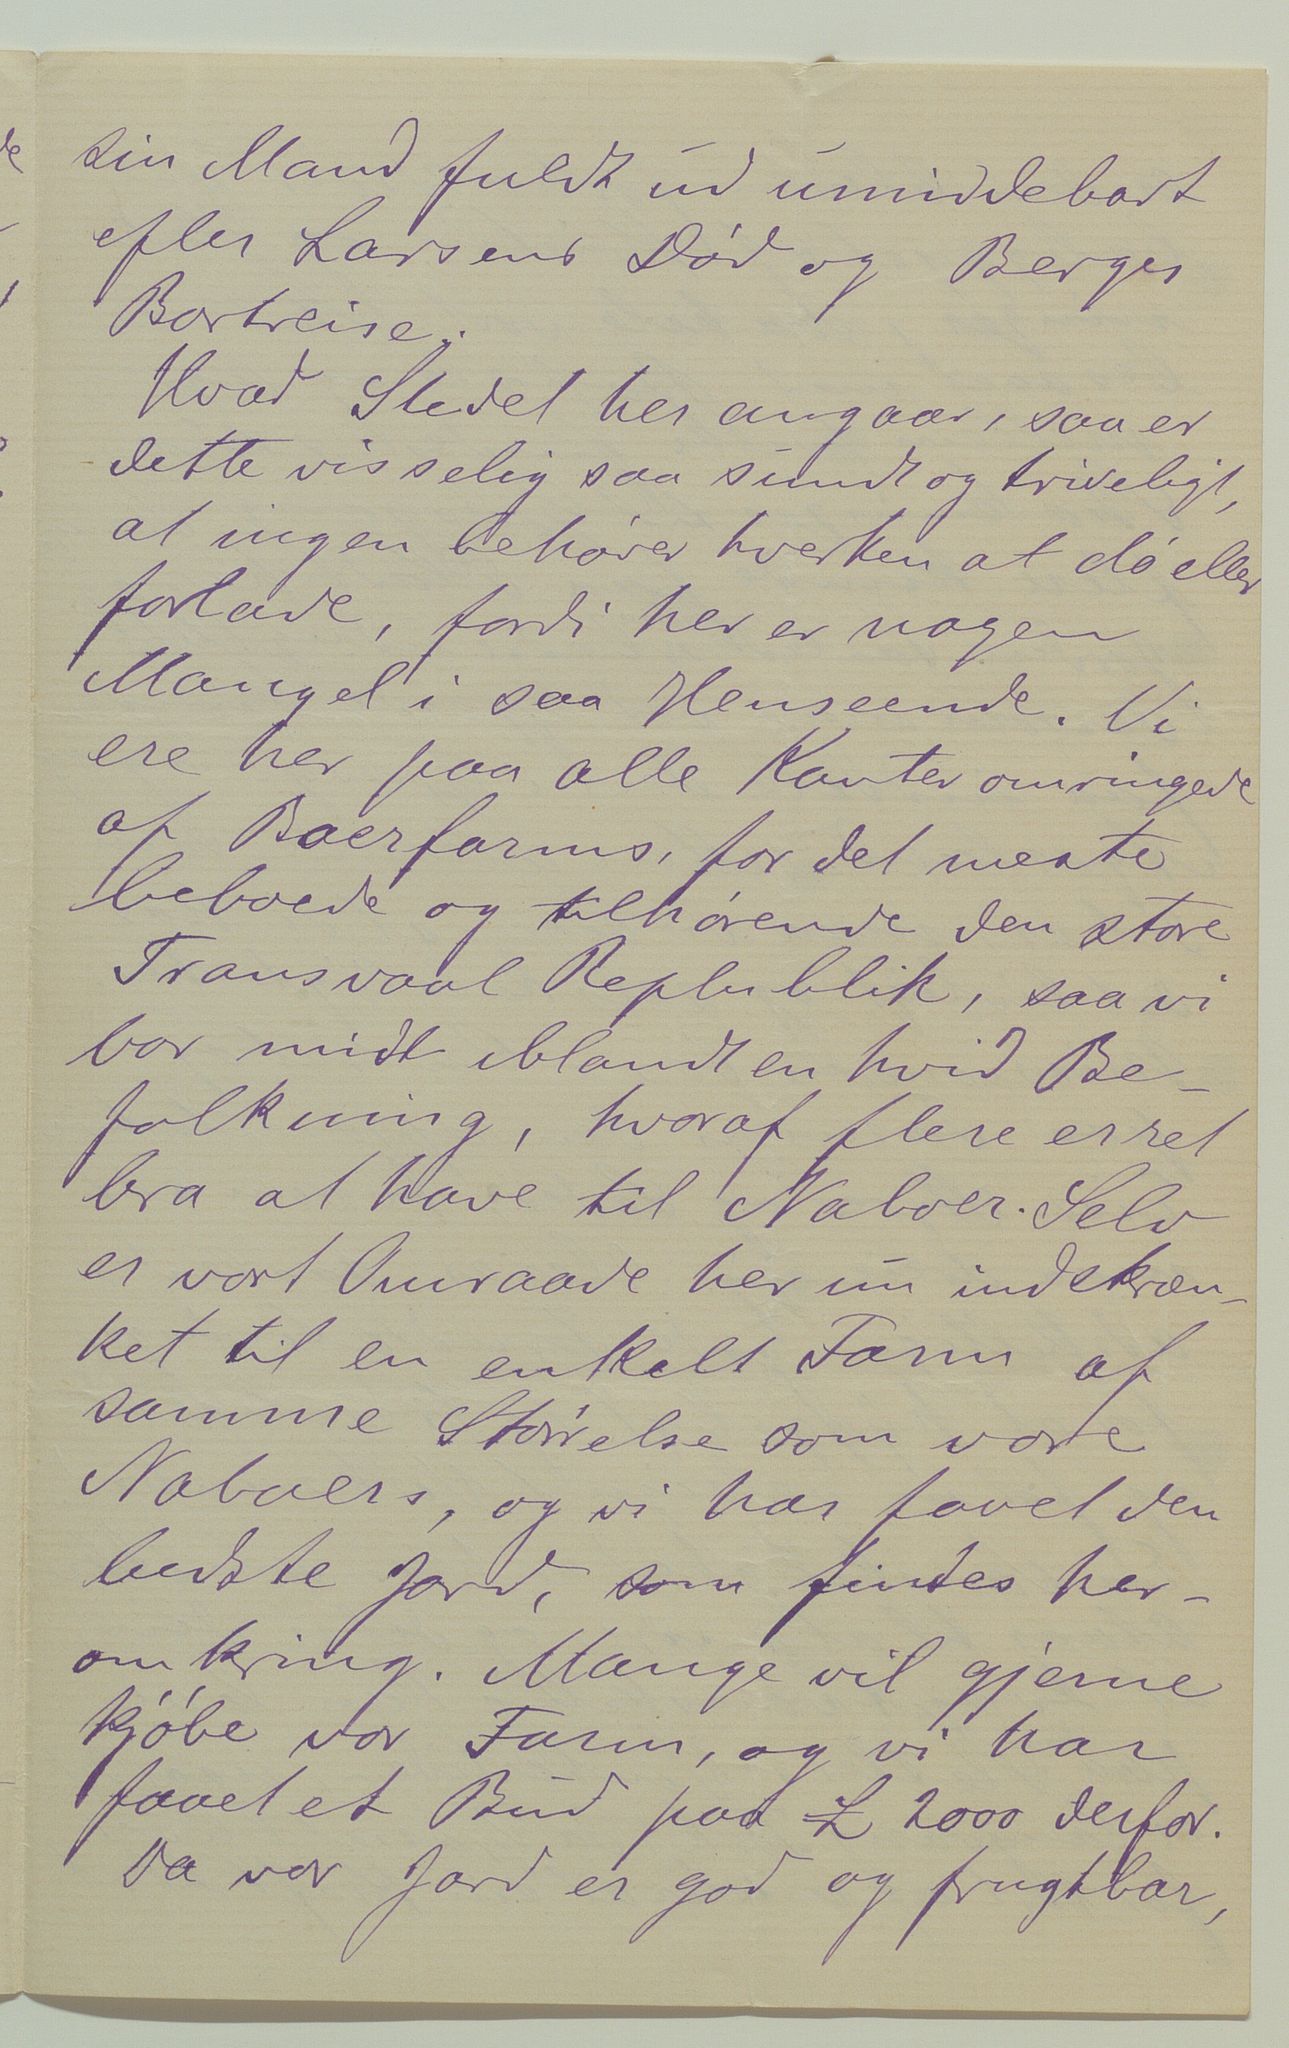 sin Mand fuldt ud umiddebart
efter Larsens Død og Berges
Bortreise.
Hvad Stedet her angaar, saa er
dette visselig saa sundt og triveligt,
at ingen behøver hverken at dø eller
forlade, fordi her er nogen
Mangel i saa Henseende. Vi
ere her paa alle Kanter omringede
af Boerfarms, for det meste
beboede og tilhørende den store
Transvaal Replublik, saa vi
bor midt iblandt en hvid Be-
folkning, hvoraf flere er ret
bra at have til Naboer. Selv
er vort Omraade her nu indskræn-
ket til en enkelt Farm af
samme Størrelse som vore
Naboers, og vi har faaet den
bedste Jord, som findes her-
omkring. Mange vil gjerne
kjøbe vor Farm, og vi har
faaet et Bud paa £ 2000 derfor.
Da vor Jord er god og frugtbar,